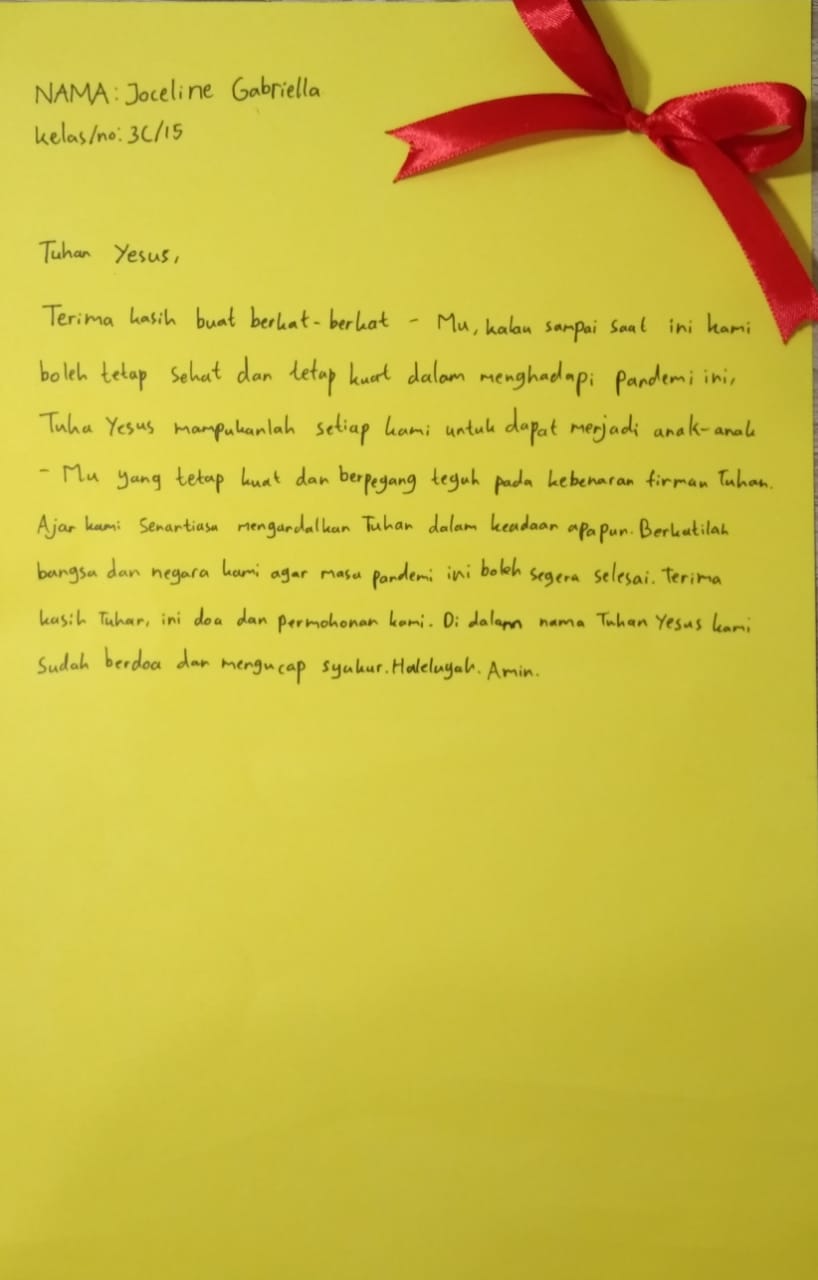 NAMA: Joceline Gabriella
kelas/no: 3C/15
Tuhan Yesus,
Terima kasih buat berkat-berkat - Mu, kalau sampai saat ini kami
boleh tetap sehat dan tetap kuat dalam menghadapi pandemi ini,
Tuha Yesus mampukanlah setiap kami untuk dapat menjadi anak-anak
- Mu yang tetap kuat dan berpegang teguh pada kebenaran firman Tuhan.
Ajar kami Senantiasa mengandalkan Tuhan dalam keadaan apapun. Berkatilah
bangsa dan negara kami agar masa pandemi ini boleh segera selesai. Terima
kasih Tuhan, ini doa dan permohonan kami. Di dalam nama Tuhan Yesus kami
Sudah berdoa dan mengucap syukur. Haleluyah. Amin.